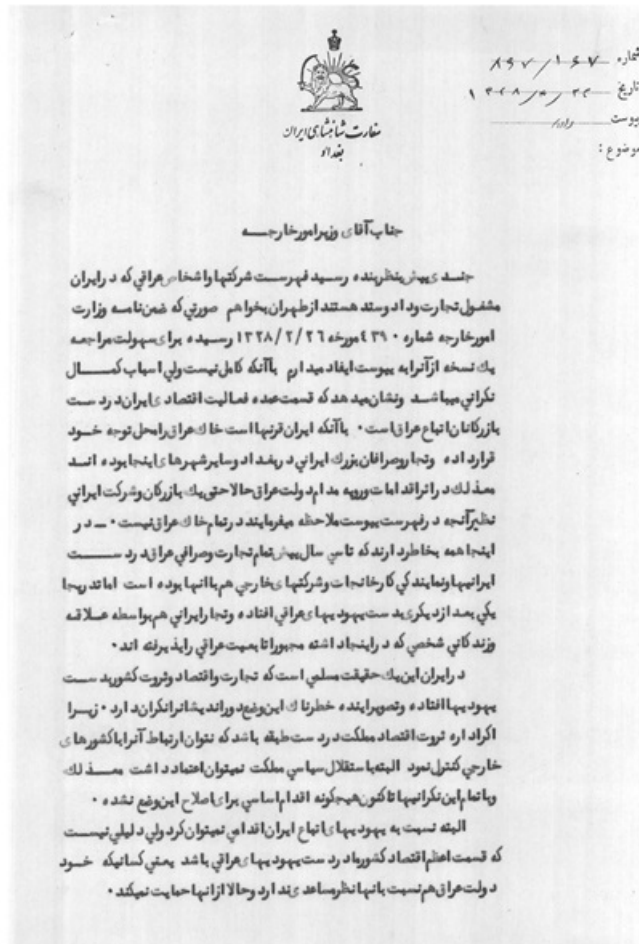 شماره ۱۶۷/۸۶۷
تاریخ ۱۳۲۸/۳/۲۲
پیوست دارد
موضوع :
سفارت شاهنشاهی ایران
بغداد
جناب آقای وزیر امور خارجه
چندی پیش بنظر بنده رسید فهرست شرکتها و اشخاص عراقی که در ایران
مشغول تجارت و داد وستد هستند از طهران بخواهم صورتی که ضمن نامه وزارت
امور خارجه شماره ۴۳۹۰ مورخه ۱۳۲۸/۲/۲۶ رسیده برای سهولت مراجعه
یك نسخه از آنرا به پیوست ایفاد میدارم باآنکه کامل نیست ولی اسباب کمال
نگرانی میباشد ونشان میدهد که قسمت عمده فعالیت اقتصادی ایران در دست
بازرگانان اتباع عراق است ۰ باآنکه ایران قرنها است خاك عراق را محل توجه خود
قرار داده وتجار وصرافان بزرك ایرانی در بغداد وسایر شهرهای اینجا بوده اند
معذلك در اثر اقدامات ورویه مدام دولت عراق حالا حتی یك بازرگان وشرکت ایرانی
نظیر آنچه در فهرست پیوست ملاحظه میفرمایند در تمام خاك عراق نیست ۰ ــ در
اینجا همه بخاطر دارند که تا سی سال پیش تمام تجارت وصرافی عراق در دست
ایرانیها ونمایندگی کارخانجات وشرکتهای خارجی هم باآنها بوده است اما تدریجا
یکی بعد از دیگری بدست یهودیهای عراقی افتاده وتجار ایرانی هم بواسطه علاقه
وزندگانی شخصی که در اینجا داشته مجبورا تابعیت عراقی را پذیرفته اند ۰
در ایران این یك حقیقت مسلمی است که تجارت واقتصاد وثروت کشور بدست
یهودیها افتاده وتصویر آینده خطرناك این وضع دوراندیشانرا نگران دارد ۰ زیرا
اگر اداره ثروت اقتصاد مملکت در دست طبقه باشد که نتوان ارتباط آنرا با کشورهای
خارجی کنترل نمود البته باستقلال سیاسی مملکت نمیتوان اعتماد داشت معذلك
وبا تمام این نگرانیها تاکنون هیچگونه اقدام اساسی برای اصلاح این وضع نشده ۰
البته نسبت به یهودیهای اتباع ایران اقدامی نمیتوان کرد ولی دلیلی نیست
که قسمت اعظم اقتصاد کشور ما در دست یهودیهای عراقی باشد یعنی کسانیکه خود
دولت عراق هم نسبت بانها نظر مساعدی ندارد وحالا از انها حمایت نمیکند ۰